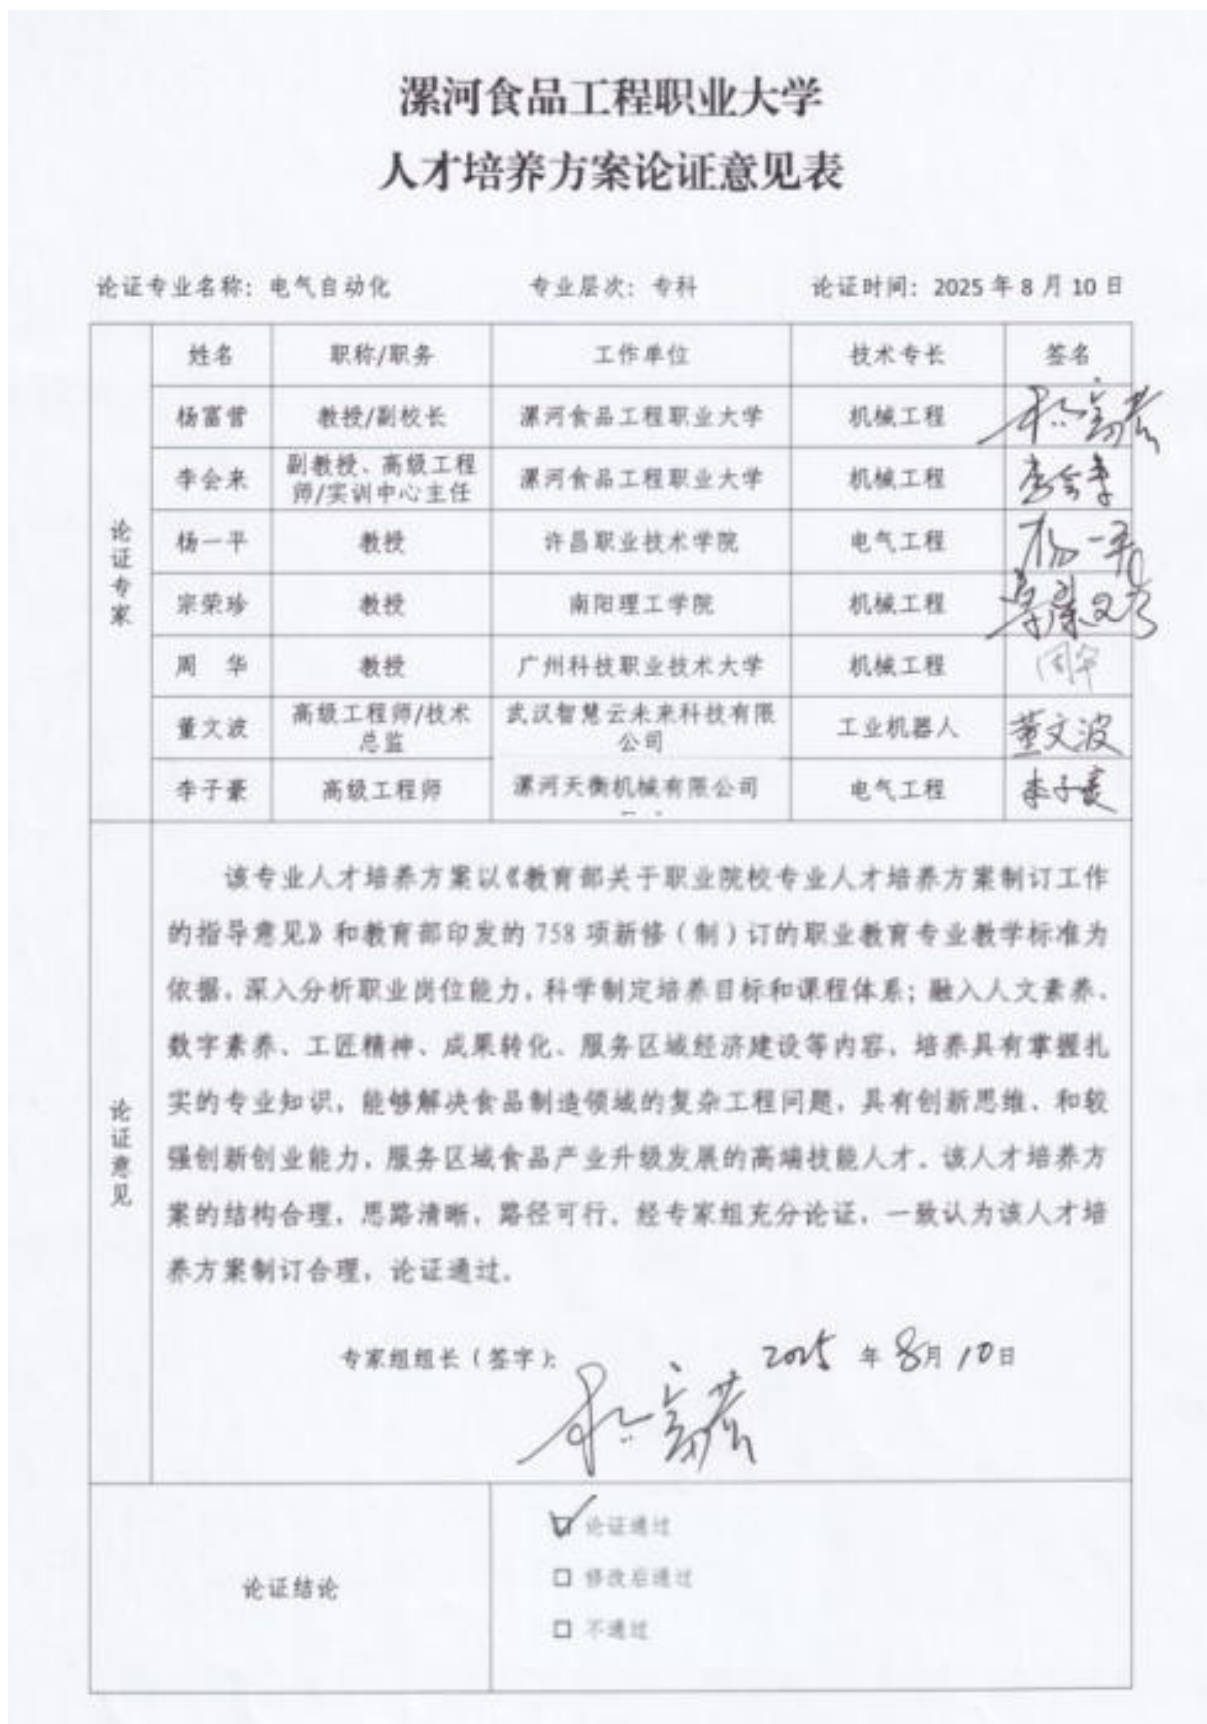 漯河食品工程职业大学
人才培养方案论证意见表
论证专业名称：电气自动化 专业层次：专科 论证时间：2025 年 8 月 10 日
论证专家
姓名 职称/职务 工作单位 技术专长 签名
杨富营 教授/副校长 漯河食品工程职业大学 机械工程 杨富营
李会来 副教授、高级工程师/实训中心主任 漯河食品工程职业大学 机械工程 李会来
杨一平 教授 许昌职业技术学院 电气工程 杨一平
宗荣珍 教授 南阳理工学院 机械工程 宗荣珍
周 华 教授 广州科技职业技术大学 机械工程 周华
董文波 高级工程师/技术总监 武汉智慧云未来科技有限公司 工业机器人 董文波
李子豪 高级工程师 漯河天衡机械有限公司 电气工程 李子豪
论证意见
该专业人才培养方案以《教育部关于职业院校专业人才培养方案制订工作
的指导意见》和教育部印发的 758 项新修（制）订的职业教育专业教学标准为
依据，深入分析职业岗位能力，科学制定培养目标和课程体系；融入人文素养、
数字素养、工匠精神、成果转化、服务区域经济建设等内容，培养具有掌握扎
实的专业知识，能够解决食品制造领域的复杂工程问题，具有创新思维、和较
强创新创业能力，服务区域食品产业升级发展的高端技能人才。该人才培养方
案的结构合理，思路清晰，路径可行。经专家组充分论证，一致认为该人才培
养方案制订合理，论证通过。
专家组组长（签字）： 2025 年 8月 10日
杨富营
论证结论
☑ 论证通过
□ 修改后通过
□ 不通过